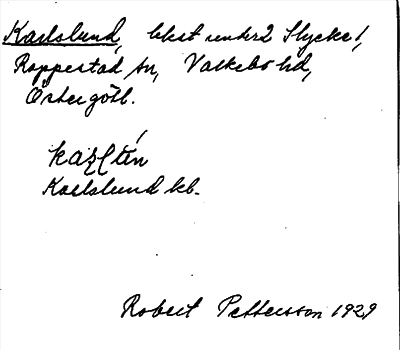 Karlslund, lhst under 2 Stycke!,
Rappestad sn, Valkebo hd,
Östergötl.
kaɽļtén
Karlslund kb.
Robert Pettersson 1929